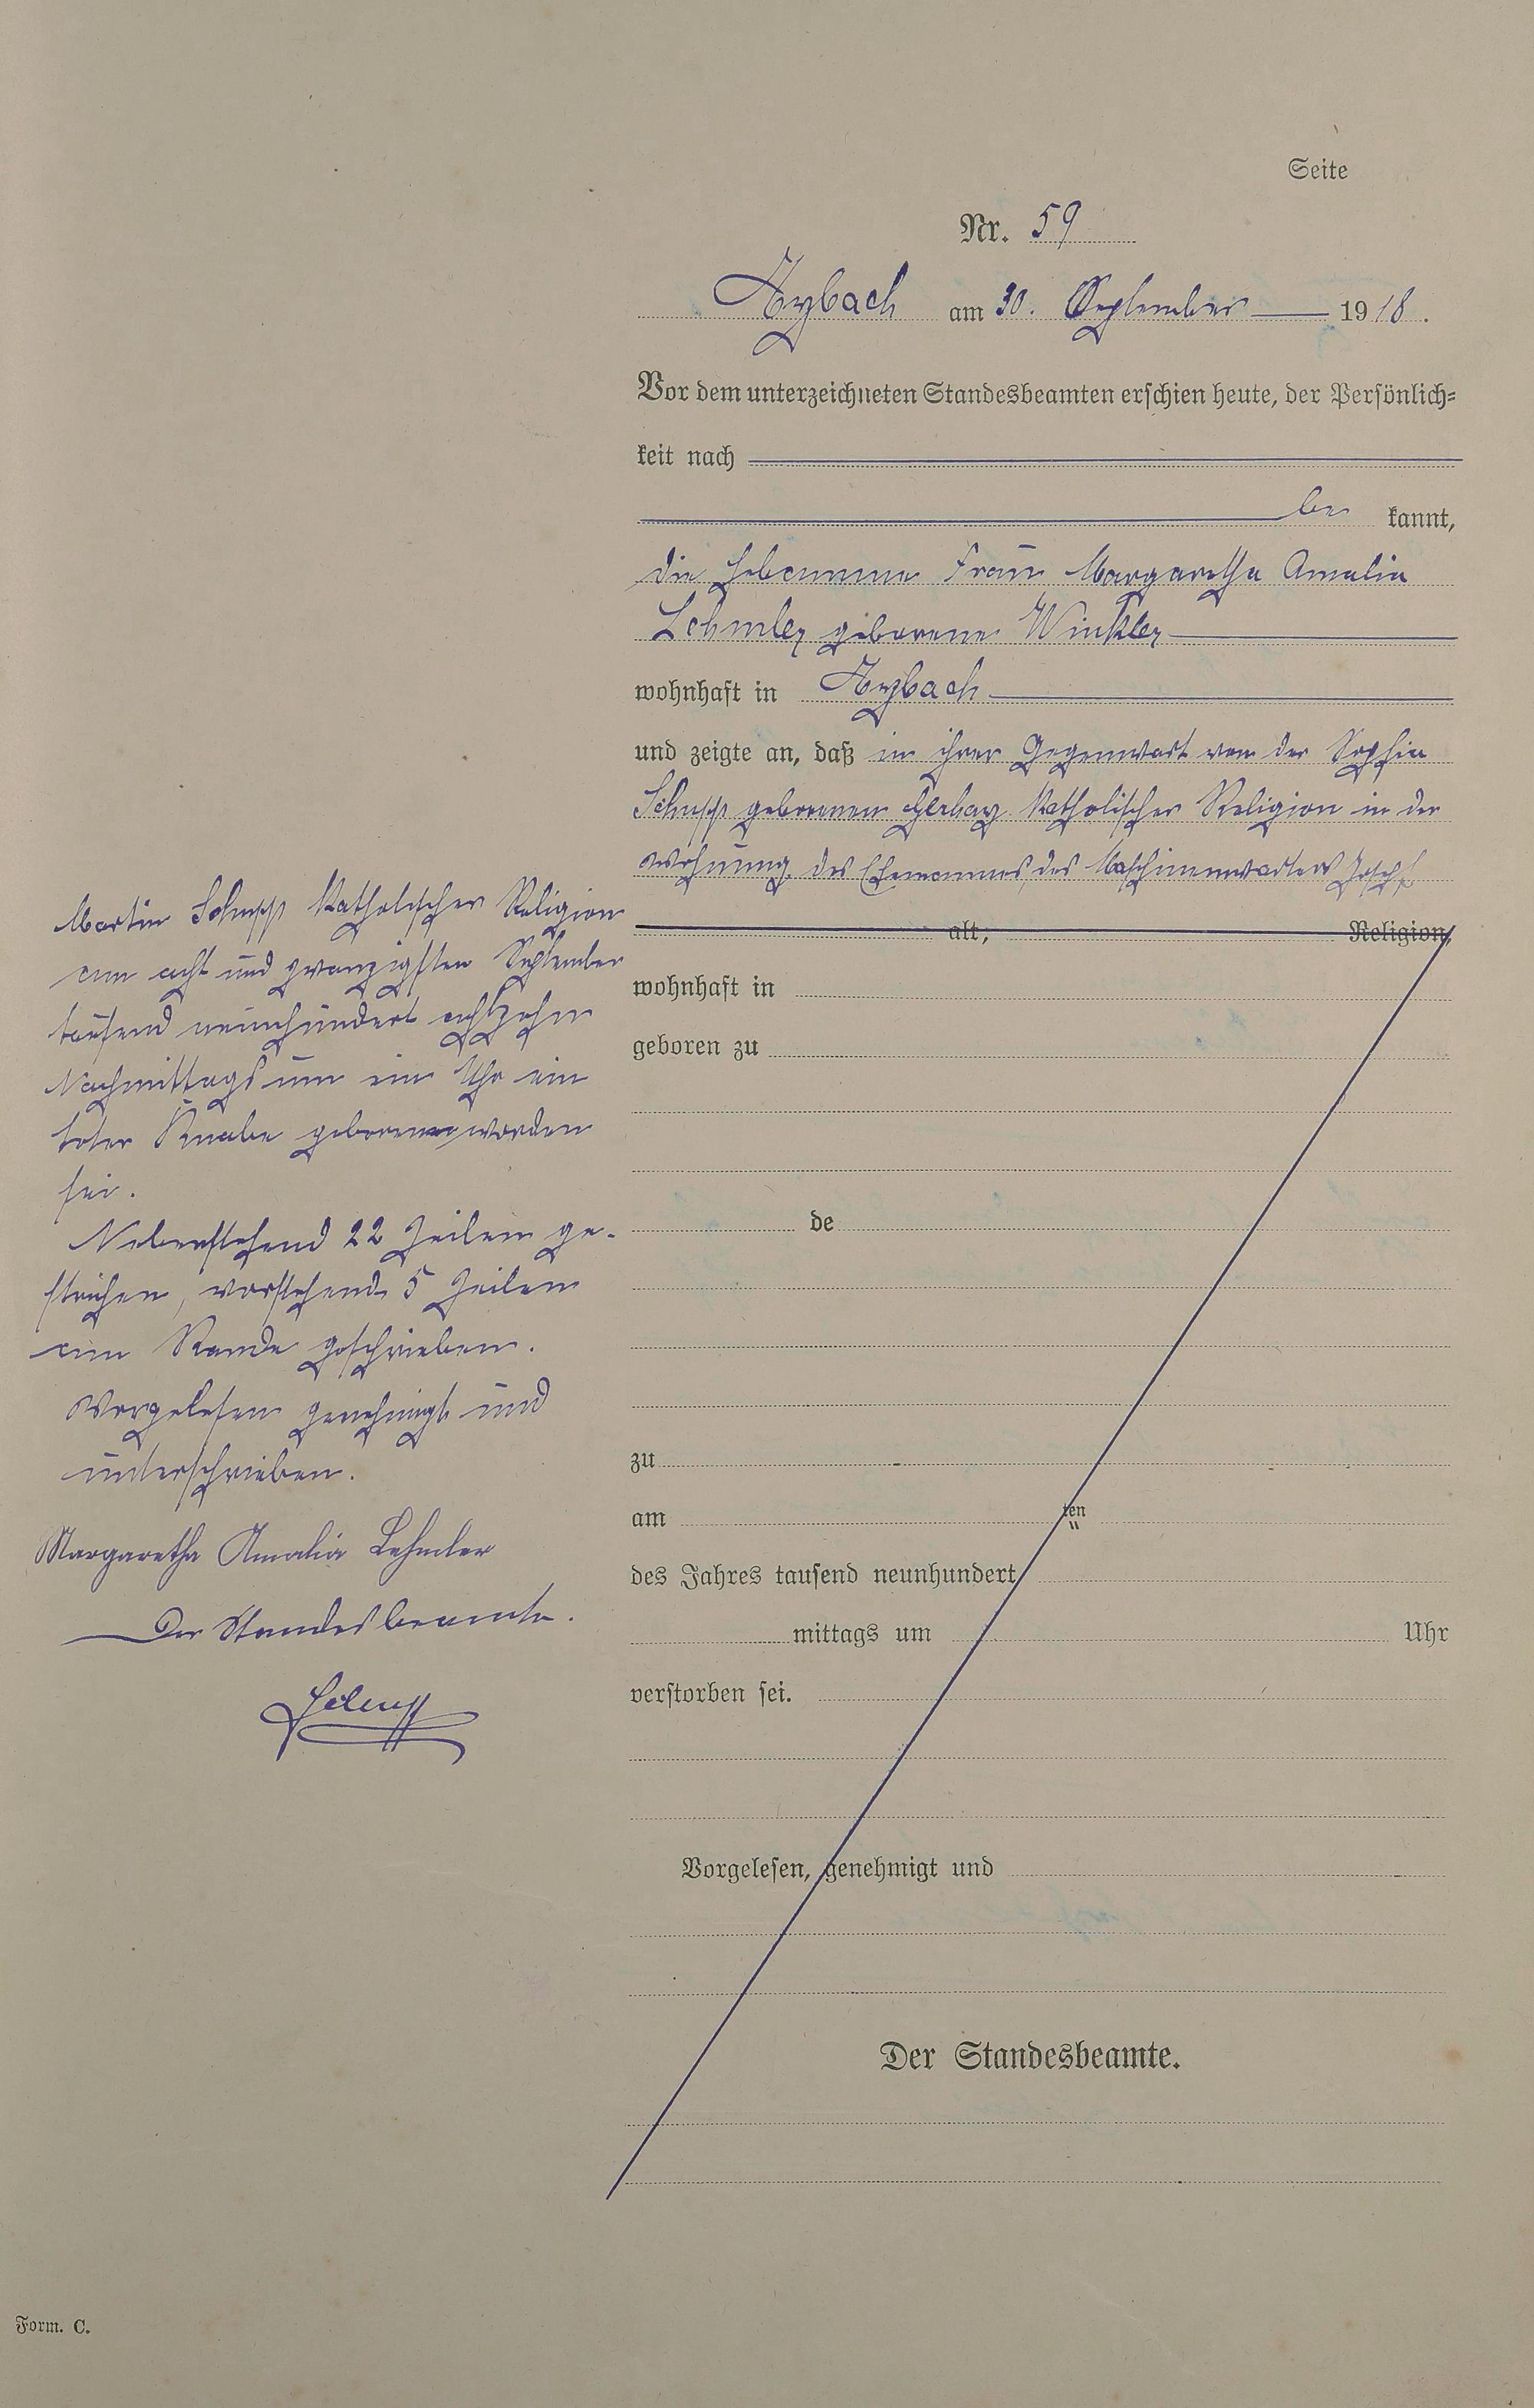 Seite
Nr. 59
Aßbach am 30. September 1918.
Vor dem unterzeichneten Standesbeamten erschien heute, der Persönlich=
keit nach
be kannt,
die Hebamme Frau Margaretha Amalia
Lehmler geborene Winkler
wohnhaft in
und zeigte an, daß in ihrer Gegenwart von der Sophia
Schupp geborenen katholischer Religion in der
Wohnung des Ehemannes, des Maschinenwärters Joseph
alt, Religion,
Martin Schupp katholischer Religion
am acht und zwanzigsten September
tausend neunhundert achtzehn
Nachmittags um ein Uhr ein
toter Knabe geboren worden
sei.
Nebenstehend 22 Zeilen ge-
strichen, vorstehend 5 Zeilen
am Rande geschrieben.
Vorgelesen genehmigt und
unterschrieben.
Margaretha Amalia Lehmler
Der Standesbeamte.
Schupp
wohnhaft in
geboren zu
de
zu
am ten
des Jahres tausend neunhundert
mittags um Uhr
verstorben sei.
Vorgelesen, genehmigt und
Der Standesbeamte.
Form. C.